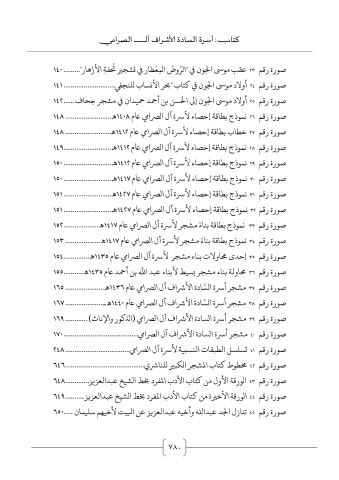 كتاب: أسرة السادة الأشراف آل الصرامي
صورة رقم ٢٣ عقب موسى الجون في "الرَّوضُ المِعْطار في تشجير تُحفةِ الأزْهار" ........ ١٤٠
صورة رقم ٢٤ أولاد موسى الجون في كتاب "بحر الأنساب للنجفي ........ ١٤١
صورة رقم ٢٥ أولاد موسى الجون إلى الحسن بن أحمد حميدان في مشجر جحاف ..... ١٤٢
صورة رقم ٢٦ نموذج بطاقة إحصاء لأسرة آل الصرامي عام ١٤٠٨هـ ........ ١٤٨
صورة رقم ٢٧ خطاب بطاقة إحصاء لأسرة آل الصرامي عام ١٤١٢هـ ........ ١٤٨
صورة رقم ٢٨ نموذج بطاقة إحصاء لأسرة آل الصرامي عام ١٤١٢هـ ........ ١٤٩
صورة رقم ٢٩ نموذج بطاقة إحصاء لأسرة آل الصرامي عام ١٤١٢هـ ........ ١٥٠
صورة رقم ٣٠ نموذج بطاقة إحصاء لأسرة آل الصرامي عام ١٤١٧هـ ........ ١٥٠
صورة رقم ٣١ نموذج بطاقة إحصاء لأسرة آل الصرامي عام ١٤٢٧هـ ........ ١٥١
صورة رقم ٣٢ نموذج بطاقة إحصاء لأسرة آل الصرامي عام ١٤٢٧هـ ........ ١٥١
صورة رقم ٣٣ نموذج بطاقة بناء مشجر لأسرة آل الصرامي عام ١٤١٧هـ ........ ١٥٢
صورة رقم ٣٤ نموذج بطاقة بناء مشجر لأسرة آل الصرامي عام ١٤١٧هـ ........ ١٥٣
صورة رقم ٣٥ إحدى محاولات بناء مشجر لأسرة آل الصرامي عام ١٤٣٥هـ ........ ١٥٤
صورة رقم ٣٦ محاولة بناء مشجر بسيط لأبناء عبد الله بن أحمد عام ١٤٣٥هـ ........ ١٥٥
صورة رقم ٣٧ مشجر أسرة السَّادة الأشراف آل الصرامي عام ١٤٣٦هـ ........ ١٦٥
صورة رقم ٣٨ مشجر أسرة السَّادة الأشراف آل الصرامي عام ١٤٤٠هـ ........ ١٦٧
صورة رقم ٣٩ مشجر أسرة السَّادة الأشراف آل الصرامي (الذكور والإناث) ........ ١٦٩
صورة رقم ٤٠ مشجر أسرة السادة الأشراف آل الصرامي ........ ١٧٠
صورة رقم ٤١ تسلسل الطبقات النسبية لأسرة آل الصرامي ........ ٢٤٨
صورة رقم ٤٢ مخطوط كتاب المشجر الكبير للناشري ........ ٦٤٦
صورة رقم ٤٣ الورقة الأول من كتاب الأدب المفرد بخط الشيخ عبدالعزيز ........ ٦٤٨
صورة رقم ٤٤ الورقة الأخيرة من كتاب الأدب المفرد بخط الشيخ عبدالعزيز ........ ٦٤٩
صورة رقم ٤٥ تنازل الجد عبدالله وأخيه عبدالعزيز عن البيت لأخيهم سليمان ..... ٦٥٠
٧٨٠